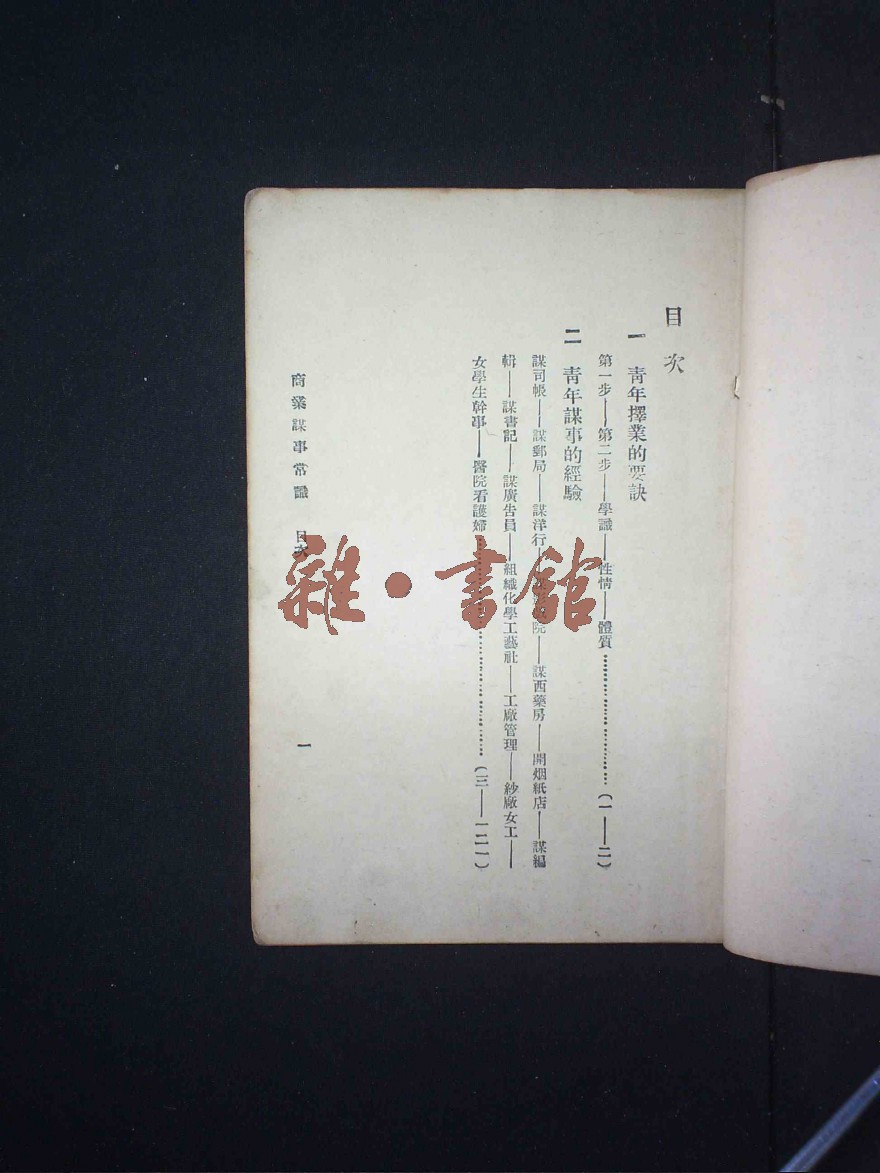 目次
一 青年擇業的要訣
第一步——第二步——學識——性情——體質……………………(一——二)
二 青年謀事的經驗
謀司帳——謀郵局——謀洋行——院——謀西藥房——開烟紙店——謀編
輯——謀書記——謀廣告員——組織化學工藝社——工廠管理——紗廠女工——
女學生幹事——醫院看護婦……………………(三——一二一)
商業謀事常識 目次
一
雜·書舘